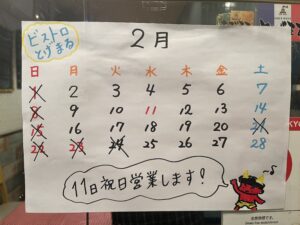 ビストロ
とげまる
2月
日 月 火 水 木 金 土
1 2 3 4 5 6 7
8 9 10 11 12 13 14
15 16 17 18 19 20 21
22 23 24 25 26 27 28
11日祝日営業します!